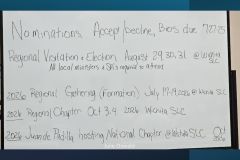 Nominations, Accept/Decline, Bios due 7-27-25
Regional Visitation & Election August 29, 30, 31 @ Wichita SLC
All local ministers & SA's required to attend
2026 Regional Gathering (Formation) July 17-19, 2026 @ Wichita SLC
2026 Regional Chapter Oct 3, 4 2026 Wichita SLC
2026 Juan de Padilla hosting National Chapter @ Wichita SLC Oct